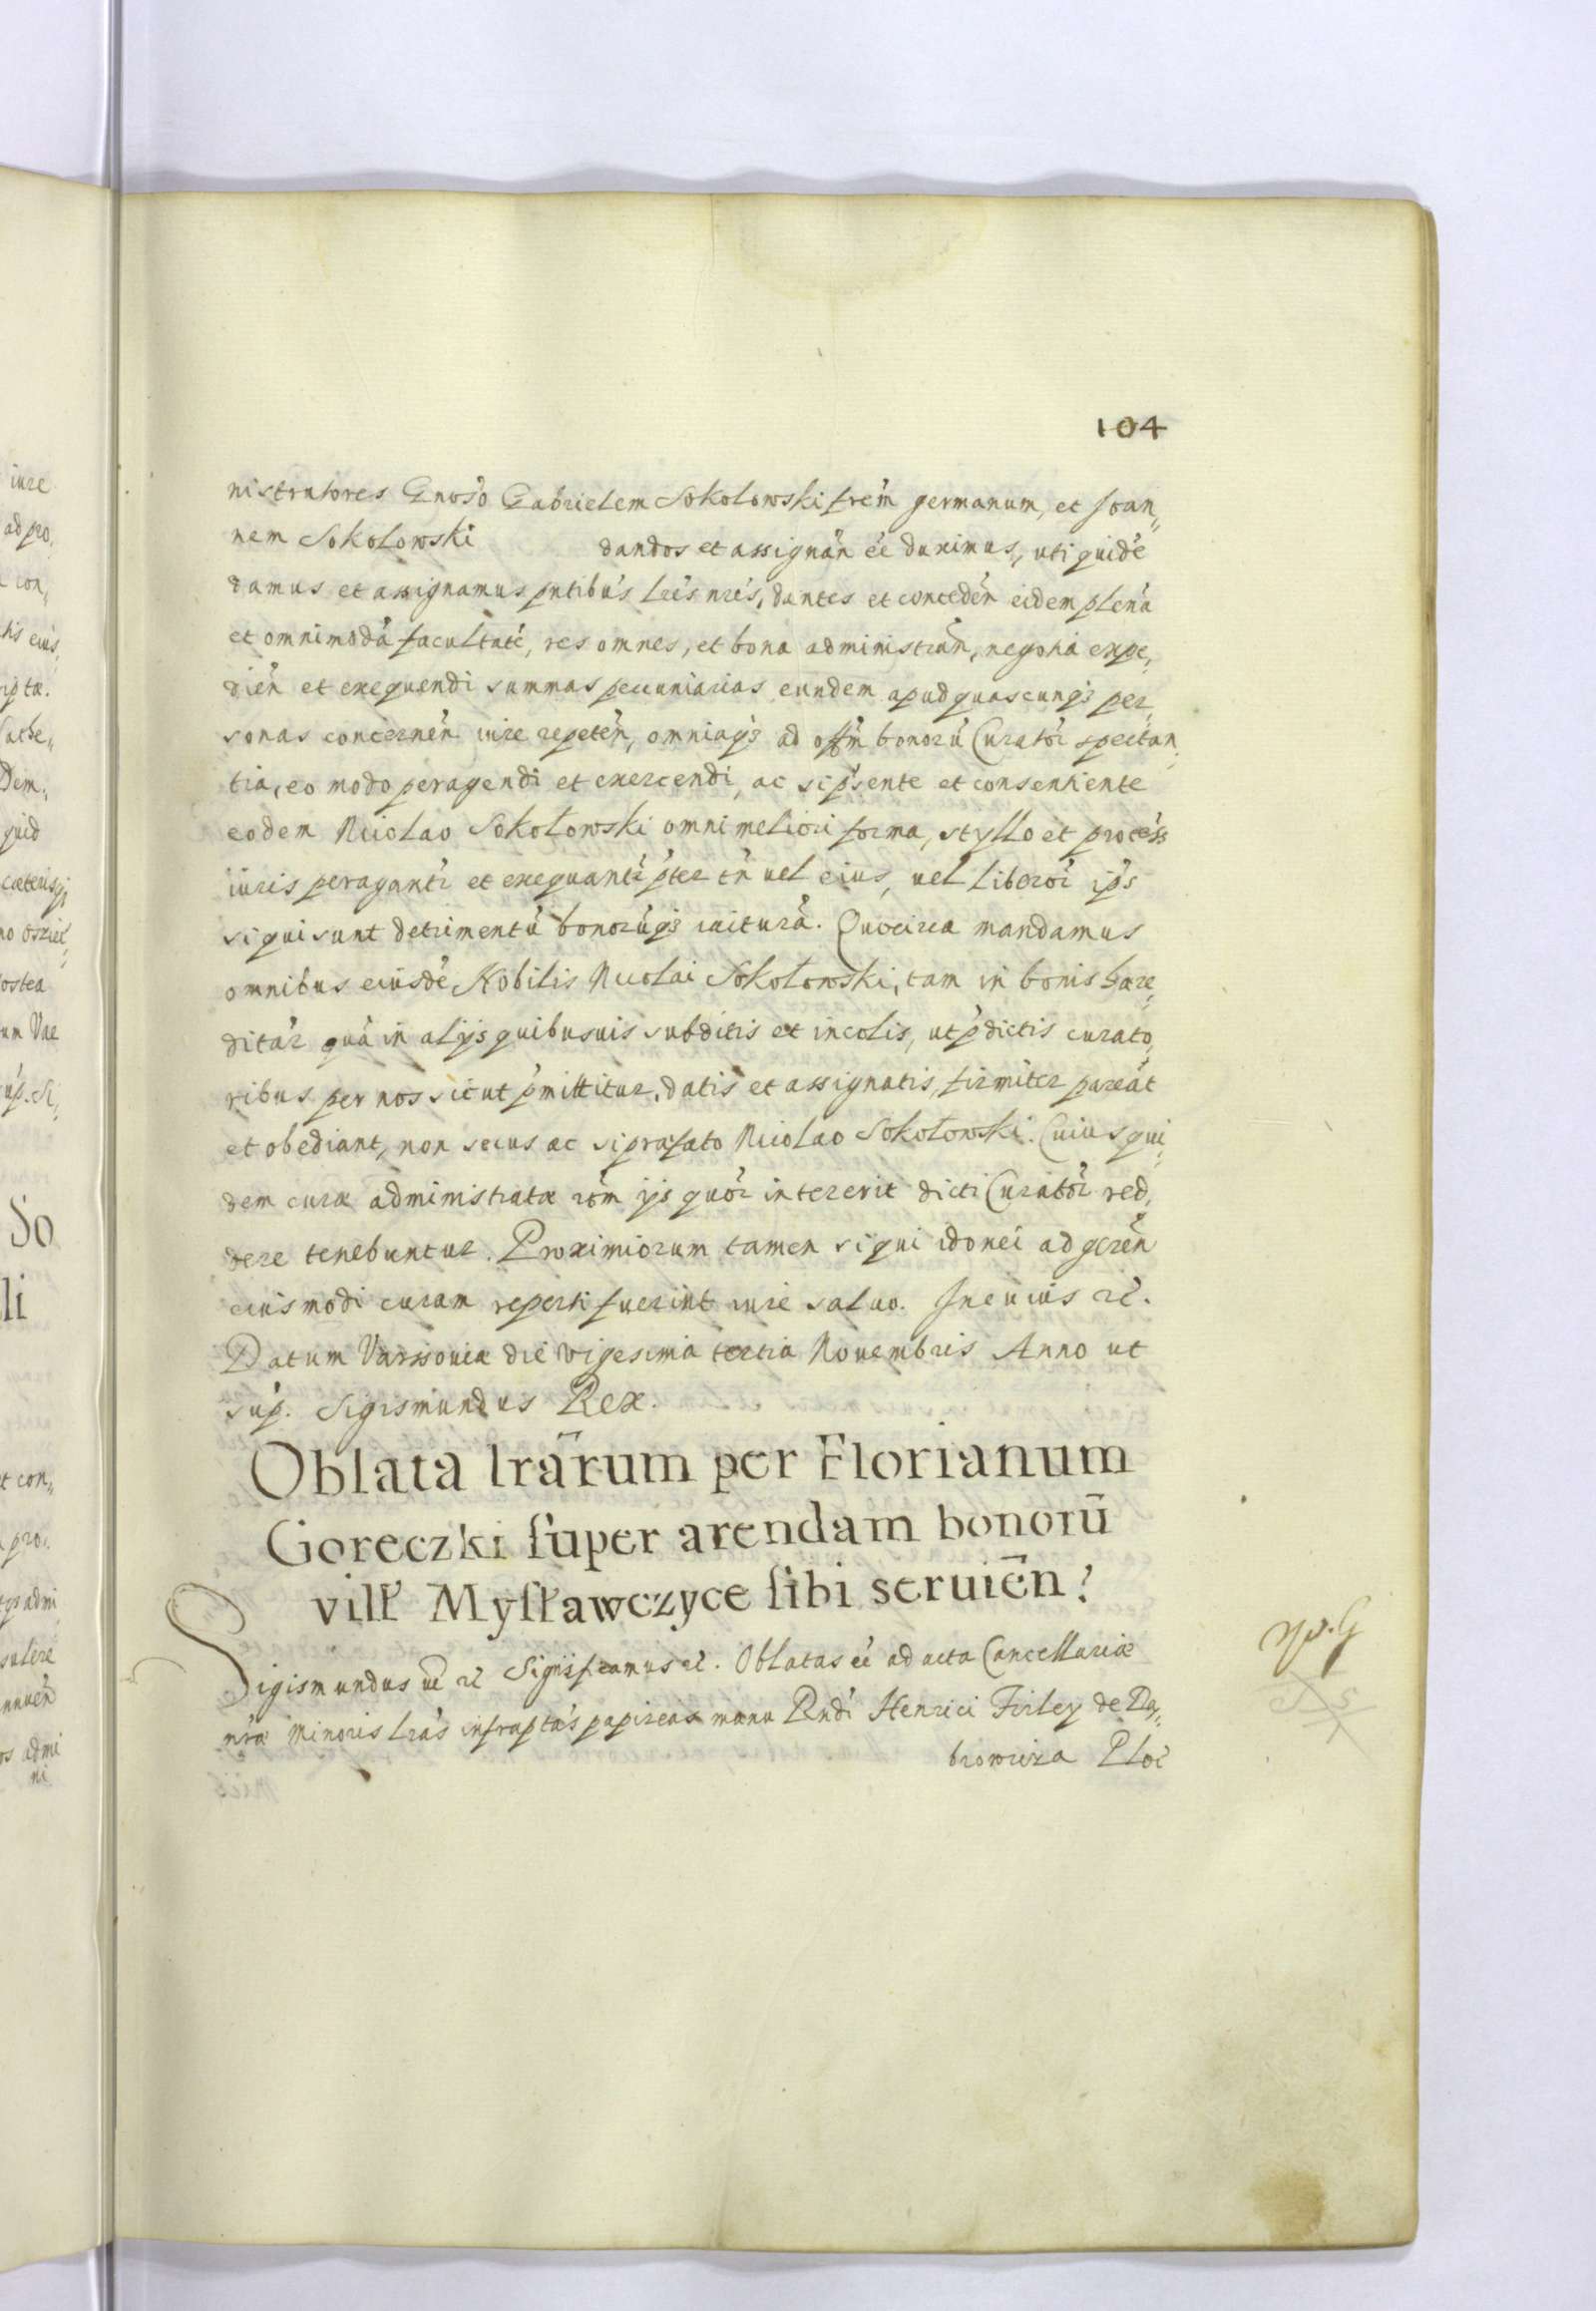 104
nistratores Gnoso Gabrielem Sokolowski frem germanum, et Joan„
nem Sokołowski dandos et assignan ee duximus, uti quide
damus et assignamus pntibus lris nris, dantes et conceden eidem plena
et omnimoda facultate, res omnes, et bona administran, negotia expe„
dien et exequendi summas pecuniarias eundem apud quascunq3 per„
sonas concernen iure repeten, omniaq3 ad offm bonoru Curator spectan„
tia, eo modo peragendi et exercendi, ac si psente et consentiente
eodem Nicolao Sokołowski omni meliori forma, styllo et process
iuris peragantr et exequantr pter tn uel eius, uel liberor ips
si qui sunt detrimentu bonoruq3 iactura. Quocirca mandamus
omnibus eiusde Nobilis Nicolai Sokołowski, tam in bonis hære„
ditar qua in alijs quibusuis subditis et incolis, ut pdictis curato„
ribus per nos sicut pmittitur, datis et assignatis, firmiter pareat
et obediant, non secus ac si præfato Nicolao Sokołowski. Cuius qui„
dem curæ administratæ rom ijs quor intererit dicti Curator red„
dere tenebuntur. Proximiorum tamen si qui idonei ad geren
eiusmodi curam reperti fuerint iure saluo. In cuius rē.
Datum Varssouiæ die vigesima tertia Nouembris Anno ut
sup. Sigismundus Rex.
Oblata lrārum per Florianum
Goreczki super arendam bonorū
vill Mysławczyce sibi seruien
Sigismundus rē Signifcamus rē. Oblatas ee ad acta Cancellariæ
nræ Minoris lras infraptas papireas manu Rndi Henrici Firley de Da„
browicza Ploc